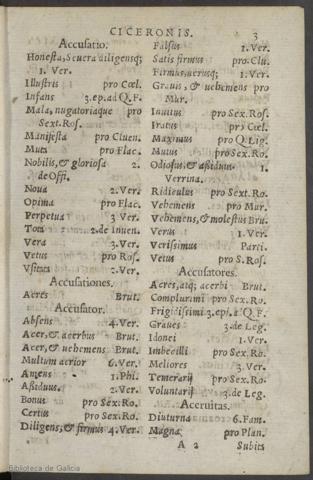 CICERONIS. 3
Accusatio.
Honesta, Seuera diligensq;
1. Ver.
Illustris pro Cœl.
Infans 3. ep. ad Q. F.
Mala, nugatoriaque pro
Sext. Ros.
Manifesta pro Cluen.
Muta pro Flac.
Nobilis, & gloriosa 2.
de Offi.
Noua 2. Ver.
Opima pro Flac.
Perpetua 3 Ver.
Tota 2. de Inuen.
Vera 3. Ver.
Vetus pro Ros.
Vsitata 2. Ver.
Accusationes.
Acres Brut.
Accusator.
Absens 4. Ver.
Acer, & acerbus Brut.
Acer, & uehemens Brut.
Multum acrior 6. Ver.
Amens 1. Phi.
Aßiduus 2. Ver.
Bonus pro Sex. Ro.
Certus pro Sex. Ro.
Diligens, & firmus 4. Ver.
Falsus 1. Ver.
Satis firmus pro. Clu.
Firmus, uerusq; 1. Ver.
Grauis, & uehemens pro
Mur.
Inuitus pro Sex. Ros.
Iratus pro Cœl.
Maximus pro Q. Lig.
Mutus pro Sex. Ro.
Odiosus, & aßiduus 1.
Verrina.
Ridiculus pro Sext. Ro.
Vehemens pro Mur.
Vehemens, & molestus Brut.
Verus 1. Ver.
Verissimus Parti.
Vetus pro S. Ros.
Accusatores.
Acres, atq; acerbi Brut.
Complurimi pro Sex. Ro.
Frigidissimi 3. epi. a Q. F.
Graues 3. de Leg.
Idonei 1. Ver.
Imbecilli pro Sex. Ro.
Meliores 3. Ver.
Temerarij pro Sex. Ro.
Voluntarij 3. de Leg.
Acruitas.
Diuturna 6. Fam.
Magna pro Plan.
A 2 Subita
Biblioteca de Galicia